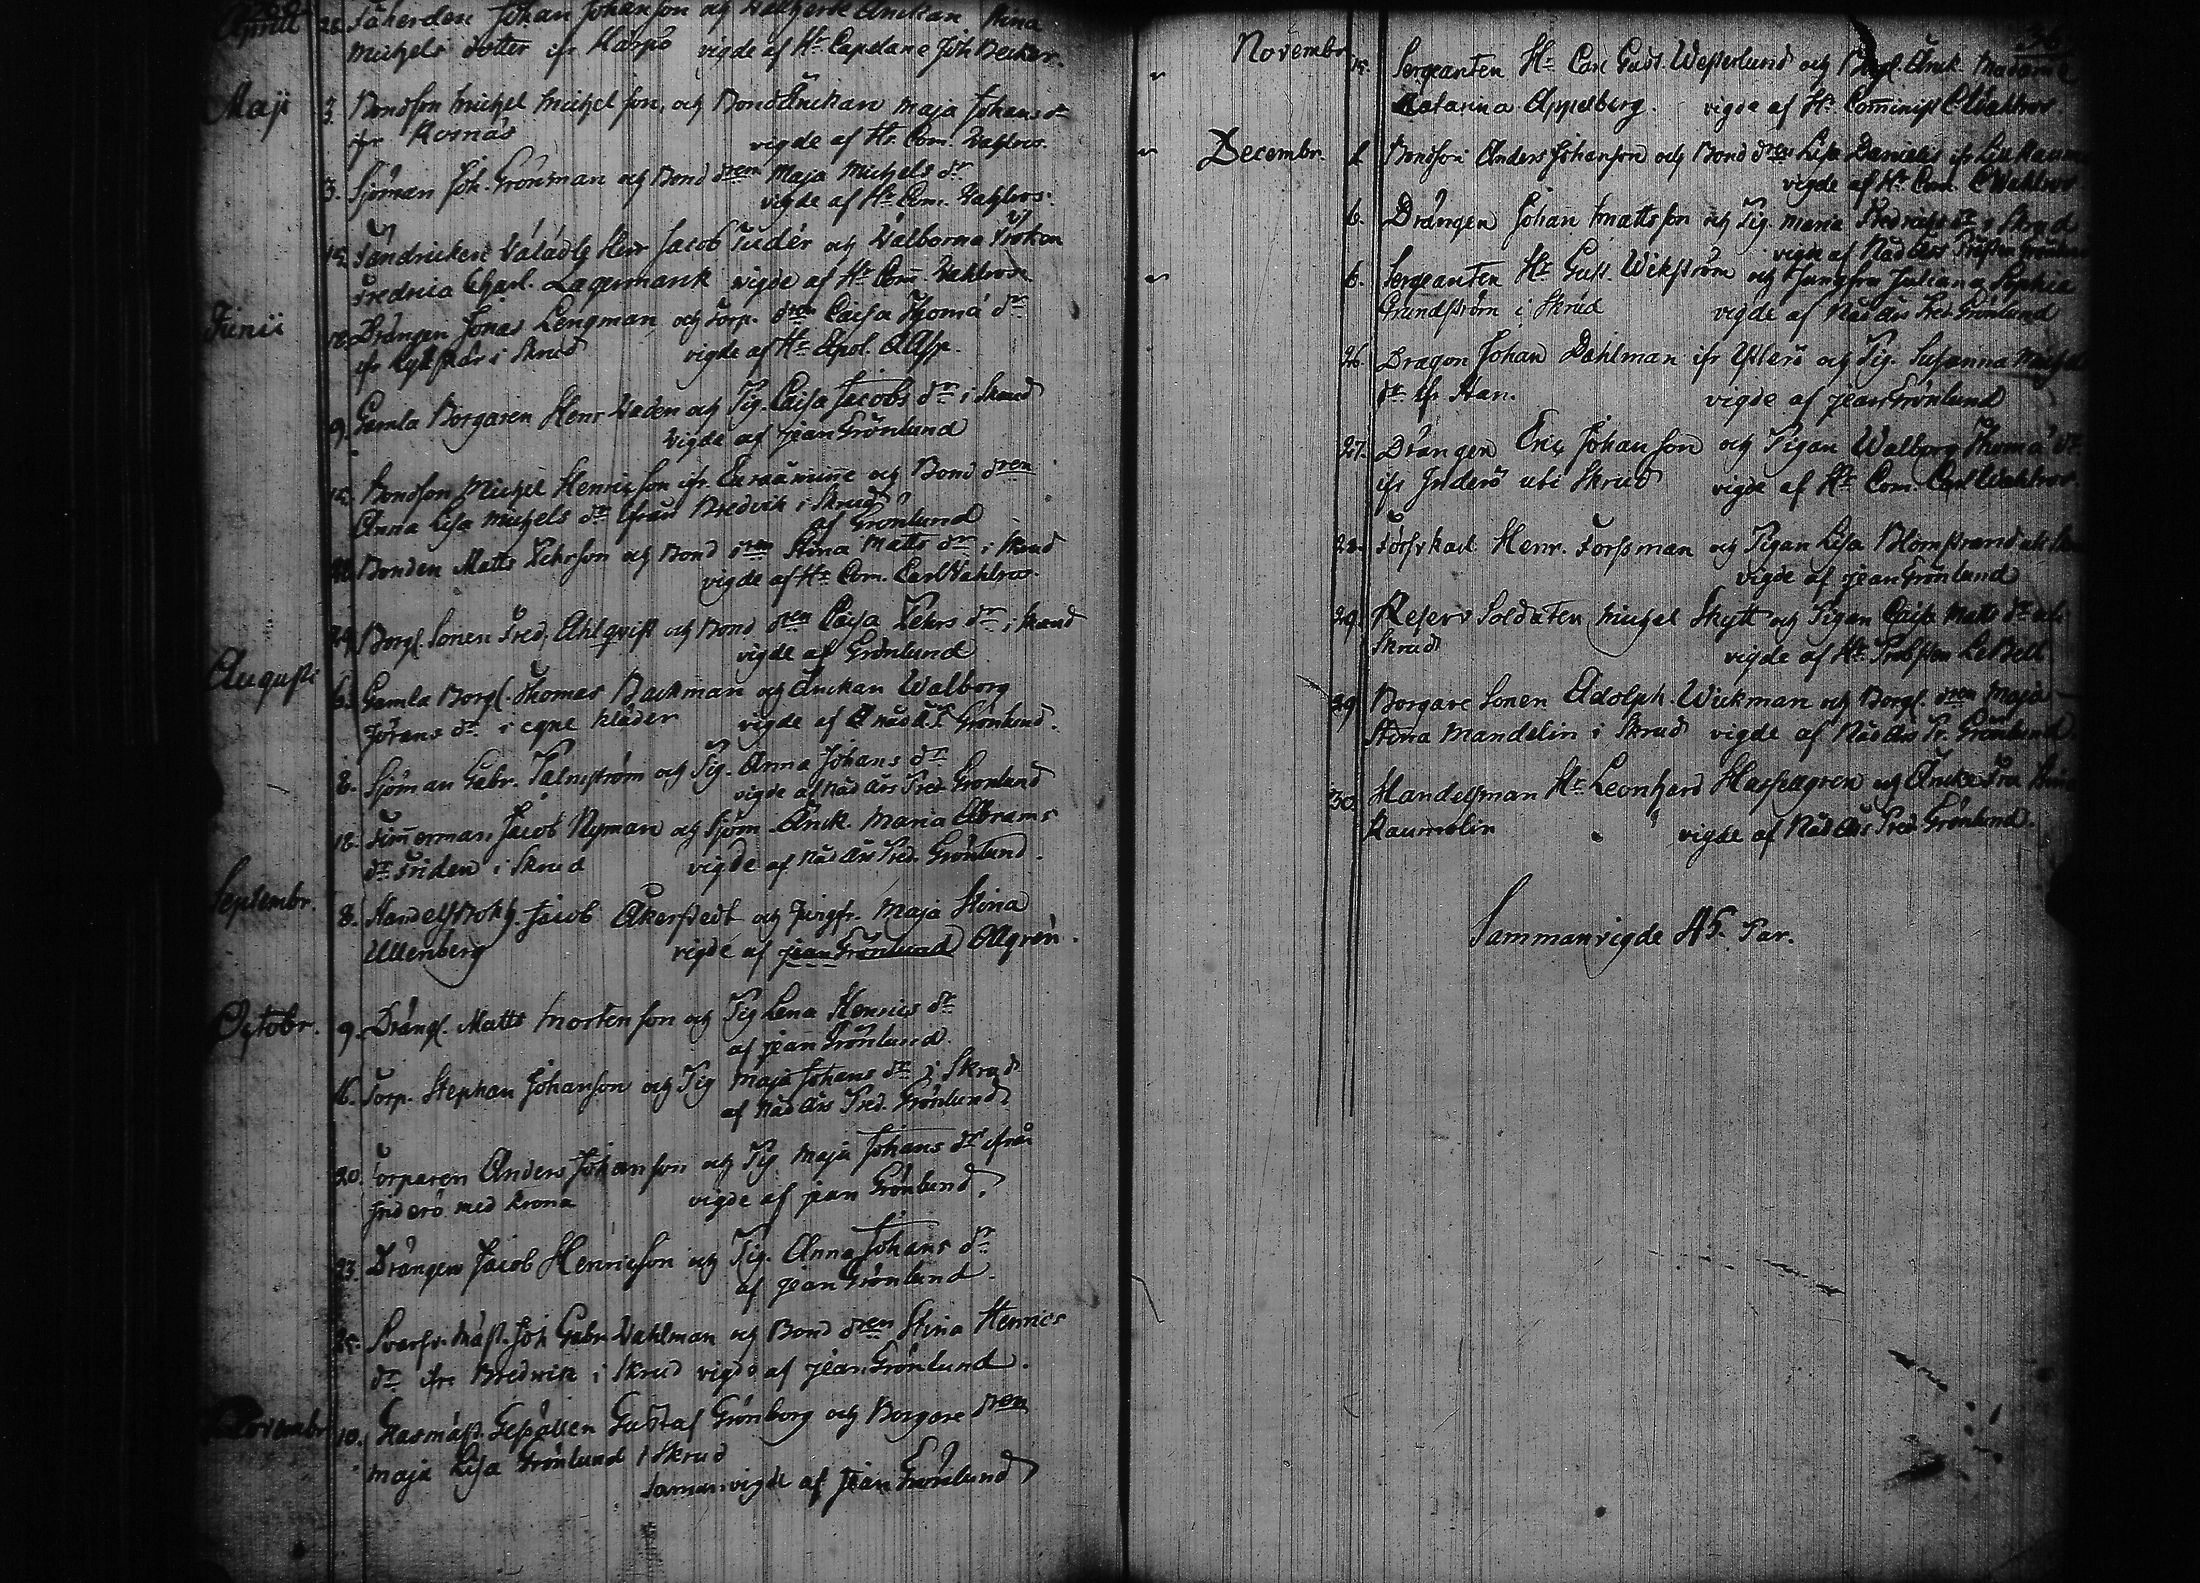 Aprill 26. Johan Johanson och Enckan Stina
Michels dotter ifr Karpo vigde af Hr Capelane Joh Becker.
Maji 3. Bondson Michel Michelson, och Bond Änckan Maja Johans dr
ifr Rosnäs vigde af Hr. Com. Wahlroos.
3. Sjöman Joh. Grönman och Bond dren Maja Michels dr
vigde af Hr Com. Wahlroos.
Fändricken Välädle Herr Jacob Tudér och Välborna Fröken
Fredrica Charl. Lagermarck vigde af Hr Com. Wahlroos
Junii 18. Drängen Jonas Lengman och Torp. dren Caisa Thoma dr
i Skrud vigde af Hr Apol. A Asp.
9. Gamla Borgaren Henr Waden och Pig. Caisa Jacobs dr i Skrud
vigde af Jean Grönlund
Bondson Michel Henricson ifr och Bond dren
Anna Lisa Michels dr ifrån Bredvik i Skrud
af Grönlund
22. Bonden Matts Pehrson och Bond dren Stina Matts dr i Skrud
vigde af Hr Com. Carl Wahlroos.
29. Borgl. Sonen Fred. Ahlqvist och Bond dren Caisa Pehrs dr i Skrud
vigde af Grönlund
Augusti 6. Gamla Borgl. Thomas Backman och Änckan Walborg
Jörans dr i egne kläder vigde af Grönlund.
8. Sjöman Gabr. Palmström och Pig. Anna Johans dr
vigde af Nåd Års Pred. Grönlund
18. Timerman Jacob Nyman och Sjöm. Änck. Maria Abrams
dr Friden i Skrud vigde af Nåd Års Pred. Grönlund.
Septembr. 8. Handelsbokh. Jacob Åkerstedt och Jungfr. Maja Stina
Ullenberg vigde af Jean Grönlund Allgren.
Octobr. 9. Drängl. Matts Mortenson och Pig Lena Henrics dr
af Jean Grönlund.
16. Torp. Stephan Johanson och Pig Maja Johans dr i Skrud
af Nåd Års Pred. Grönlund.
20. Torparen Anders Johanson och Pig. Maja Johans dr ifrån
Inderö med krona vigde af Jean Grönlund.
23. Drängen Jacob Henricson och Pig. Anna Johans dr
af Jean Grönlund.
25. Svarfv. Mäst. Joh Gabr. Wahlman och Bond dren Stina Henrics
dr ifr. Bredwik i Skrud vigde af Jean Grönlund.
Novembr 10. Glasmäst. Gesällen Gustaf Grönborg och Borgare dren
Maja Lisa Grönlund i Skrud
Samanvigde af Jean Grönlund
Novembr 15. Sergeanten Hr Carl Gust. Westerlund och Borgl. Änck Madame
Catarina Appelberg. vigde af Hr Comminist C Wahlroos
Decembr. 1. Bondson Anders Johanson och Bond dren Lisa Daniels ifr
vigde af Hr Com. C Wahlroos
6. Drängen Johan Mattsson och Pig. Maria Fredrichs dr i Skrud
vigde af Nåd Års Prästen Grönlund
6. Sergeanten Hr Gust. Wikström och Jungfru Juliana Sophia
Grundström i Skrud vigde af Nåd Års Pred. Grönlund
26. Dragon Johan Dahlman ifr Ytterö och Pig. Susanna Michels
dr ifr vigde af Jean Grönlund
27. Drängen Eric Johanson och Pigan Walborg Thoma dr
ifr Inderö uti Skrud vigde af Hr Com. Carl Wahlroos.
28. Henr. Forssman och Pigan Lisa Blomstrand uti
vigde af Jean Grönlund
29. Reserv Soldaten Michel Skytt och Pigan Caisa Matts dr uti
Skrud vigde af Hr Probsten LeBell
29 Borgare Sonen Adolph Wickman och Borgl. dren Maja
Stina Mandelin i Skrud vigde af Nåd Års Pr. Grönlund.
30. Handelsman Hr Leonhard Hasselgren och Encke Fru
Raumolin vigde af Nåd Års Pred. Grönlund.
Sammanvigde 45. Par.